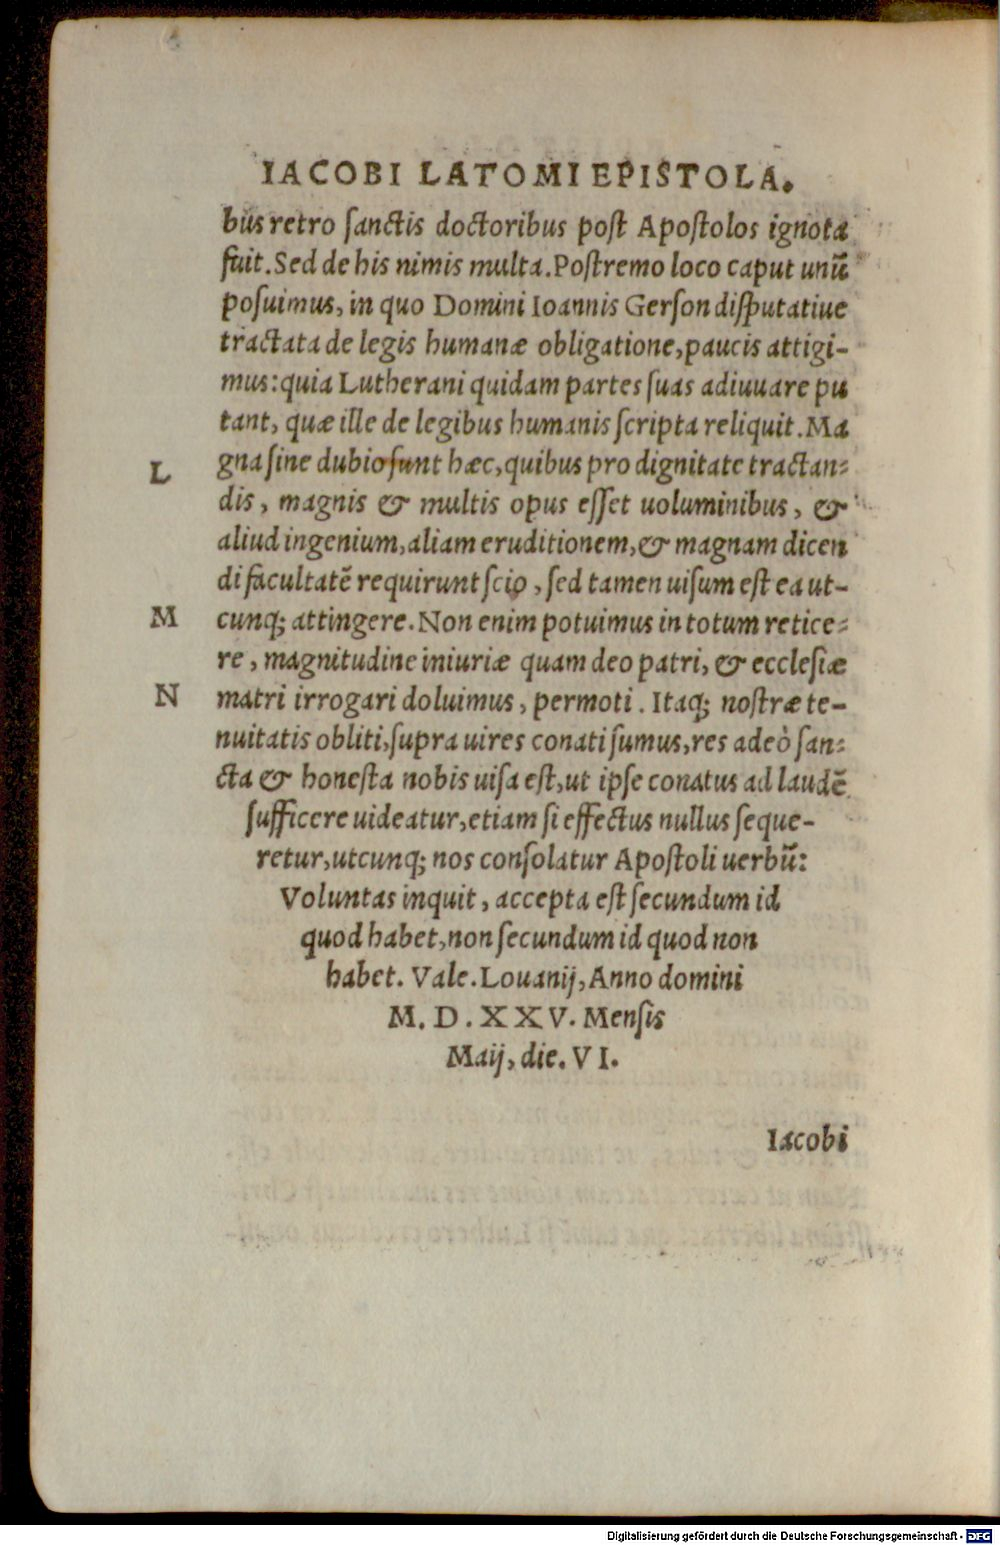 IACOBI LATOMI EPISTOLA.
bus retro ſanctis doctoribus poſt Apoſtolos ignota
fuit. Sed de his nimis multa. Poſtremo loco caput unũ
poſuimus, in quo Domini Ioannis Gerſon diſputatiue
tractata de legis humanæ obligatione, paucis attigi-
mus: quia Lutherani quidam partes ſuas adiuuare pu
tant, quæ ille de legibus humanis ſcripta reliquit. Ma
L gna ſine dubio ſunt hæc, quibus pro dignitate tractan-
dis, magnis & multis opus eſſet uoluminibus, &
aliud ingenium, aliam eruditionem, & magnam dicen
di facultatẽ requirunt ſcio, ſed tamen uiſum eſt ea ut-
M cunq; attingere. Non enim potuimus in totum retice-
re, magnitudine iniuriæ quam deo patri, & eccleſiæ
N matri irrogari doluimus, permoti. Itaq; noſtræ te-
nuitatis obliti, ſupra uires conati ſumus, res adeò ſan-
cta & honeſta nobis uiſa eſt, ut ipſe conatus ad laudẽ
ſufficere uideatur, etiam ſi effectus nullus ſeque-
retur, utcunq; nos conſolatur Apoſtoli uerbũ:
Voluntas inquit, accepta eſt ſecundum id
quod habet, non ſecundum id quod non
habet. Vale. Louanij, Anno domini
M. D. XXV. Menſis
Maij, die. VI.
Iacobi
Digitalisierung gefördert durch die Deutsche Forschungsgemeinschaft - DFG